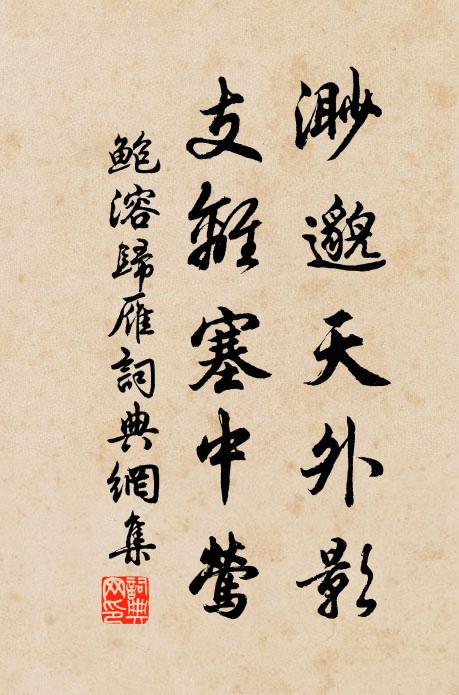 渺邈天外影
支離塞中鶯
鮑溶歸雁詞典網集
詞典網印